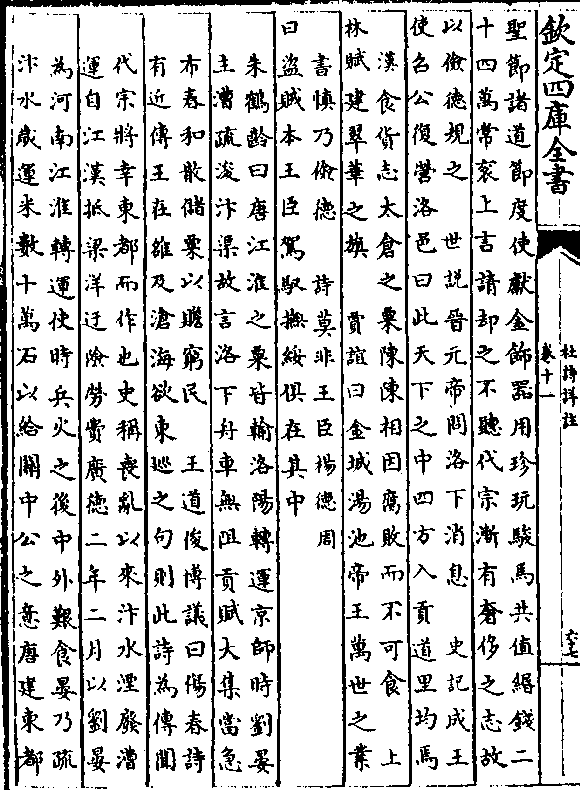 欽定四庫全書
杜詩詳註
卷十一
六十七
聖節諸道節度使獻金飾器用珍玩駿馬共值緡錢二
十四萬常衮上言請却之不聽代宗漸有奢侈之志故
以儉德規之 世説晉元帝問洛下消息 史記成王
使召公復營洛邑曰此天下之中四方入貢道里均焉
漢食貨志太倉之粟陳陳相因腐敗而不可食 上
林賦建翠華之旗 賈誼曰金城湯池帝王萬世之業
書慎乃儉德 詩莫非王臣楊德周
曰盜賊本王臣駕馭撫綏俱在其中
朱鶴齡曰唐江淮之粟皆輸洛陽轉運京師時劉晏
主漕疏浚汴渠故言洛下舟車無阻貢賦大集當急
布春和散儲粟以贍窮民 王道俊博議曰傷春詩
有近傳王在雒及滄海欲東巡之句則此詩為傳聞
代宗將幸東都而作也史稱喪亂以來汴水湮廢漕
運自江漢抵梁洋迂險勞費廣德二年二月以劉晏
為河南江淮轉運使時兵火之後中外艱食晏乃疏
汴水歲運米數十萬石以給關中公之意唐建東都